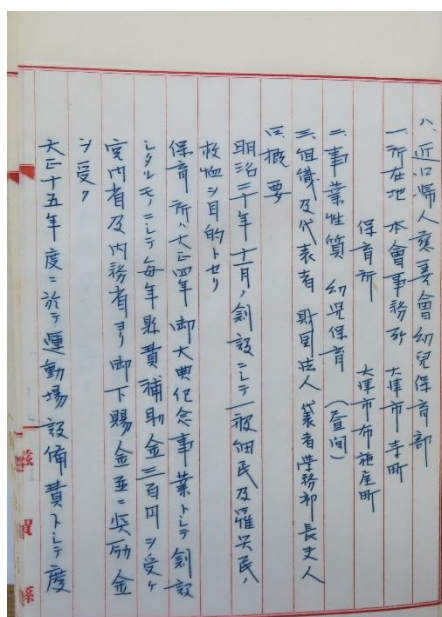 八、近江婦人慈善會幼兒保育部
一、所在地 本會事務所 大津市 町
保育所 大津市布施屋町
二、事業性質 幼兒保育 (昼间)
三、组織及代表者 財団法人 代表者学務部長夫人
四、概要
明治二十年十一月ノ創設ニシテ一般細民及罹災民ノ
救恤ヲ目的トセリ
保育所ハ大正四年御大典紀念事業トシテ創設
シタルモノニシテ毎年縣費補助金三百円ヲ受ケ
宮内省及内務省ヨリ御下賜金並ニ奨励金
ヲ受ク
大正十五年度ニ於テ運動場設備費トシテ慶
滋賀縣